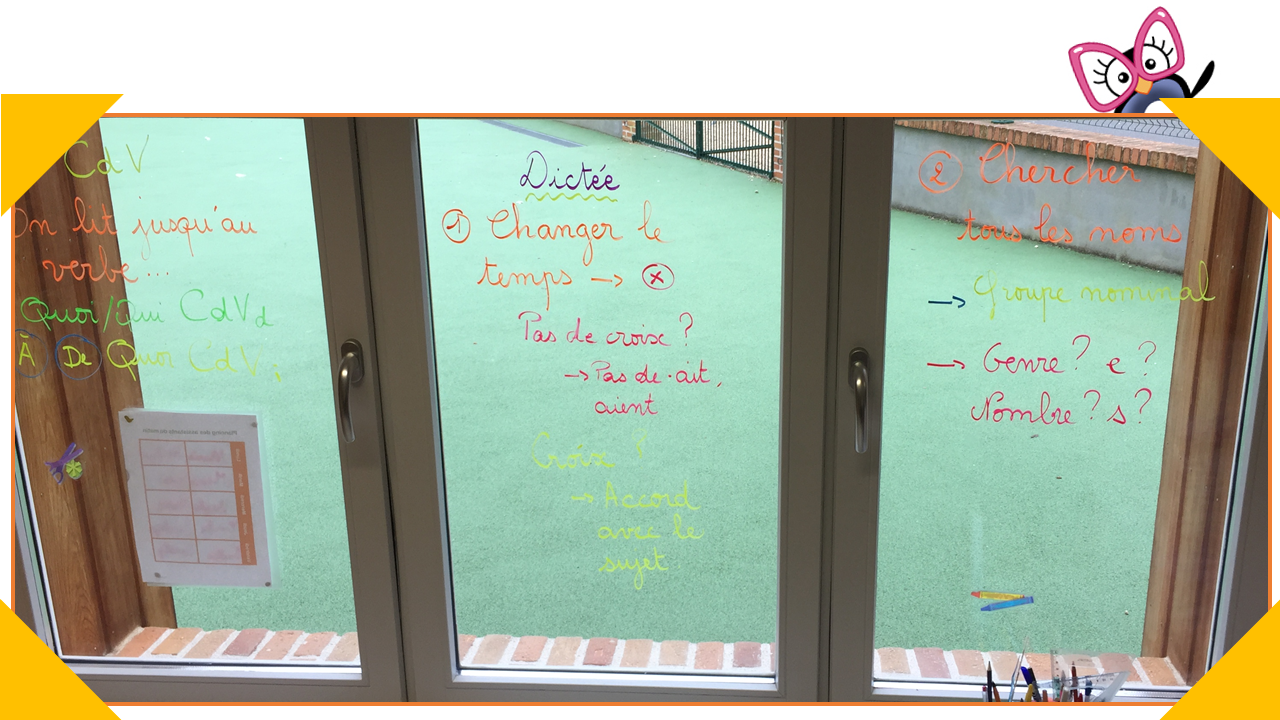 CdV
On lit jusqu'au
verbe...
Quoi/Qui CdVd
À De Quoi CdVi
Dictée
① Changer le
temps → ⓧ
Pas de croix ?
→ Pas de -ait,
aient
Croix ?
→ Accord
avec le
sujet
② Chercher
tous les noms
→ Groupe nominal
→ Genre ? e ?
Nombre ? s ?